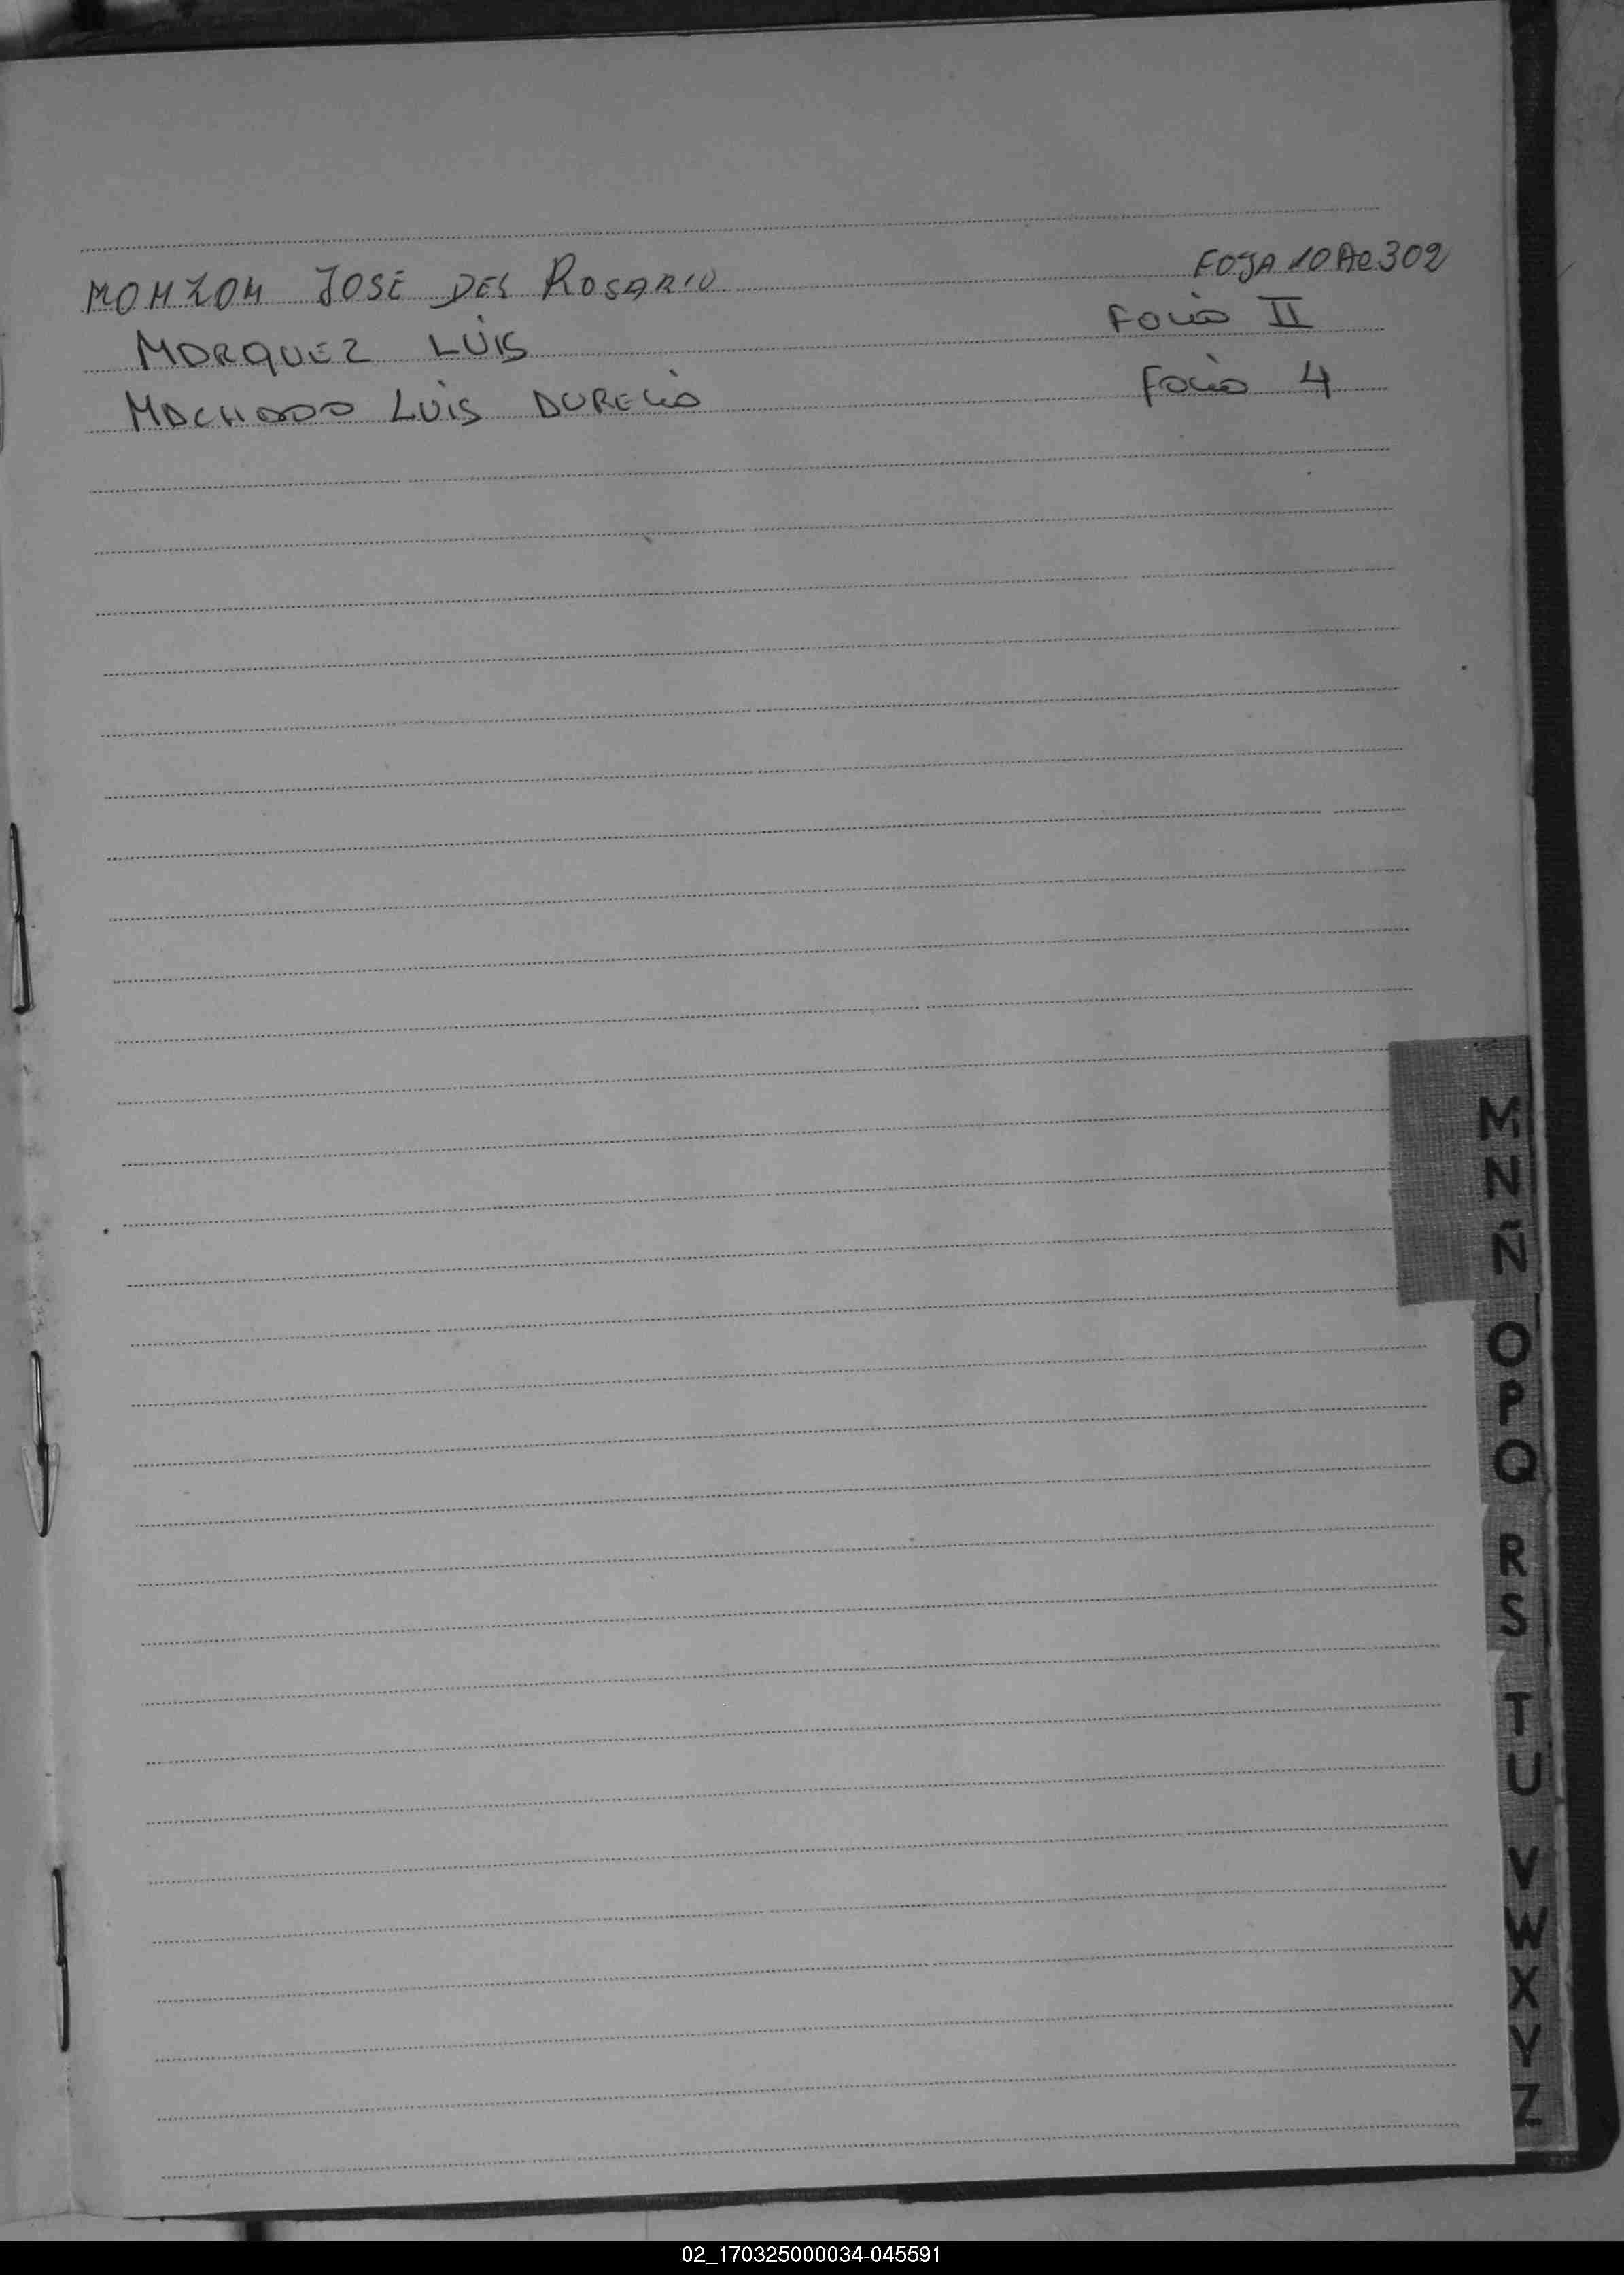 MONZON JOSE DEL ROSARIO FOJA 10 Ac 302
MARQUEZ LUIS Folio II
MACHADO LUIS AURELIO Folio 4
M
N
Ñ
O
P
Q
R
S
T
U
V
W
X
Y
Z
02_170325000034-045591